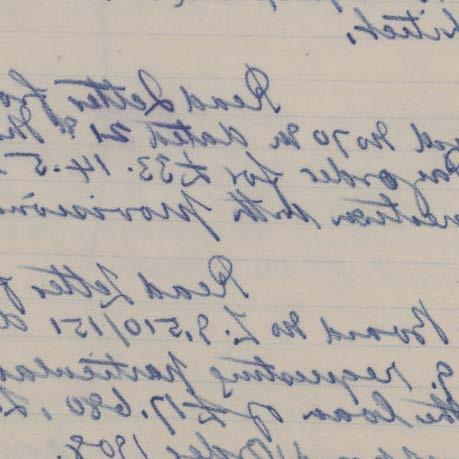 hitect.
Read Letter fro
No 70 Ba dated 21st
Pay order for £33. 14. 5
nection with provision
Read Letter f
Board No L. 9,510/151
9. requesting particular
the loan of £17,680, L
Order 1908.